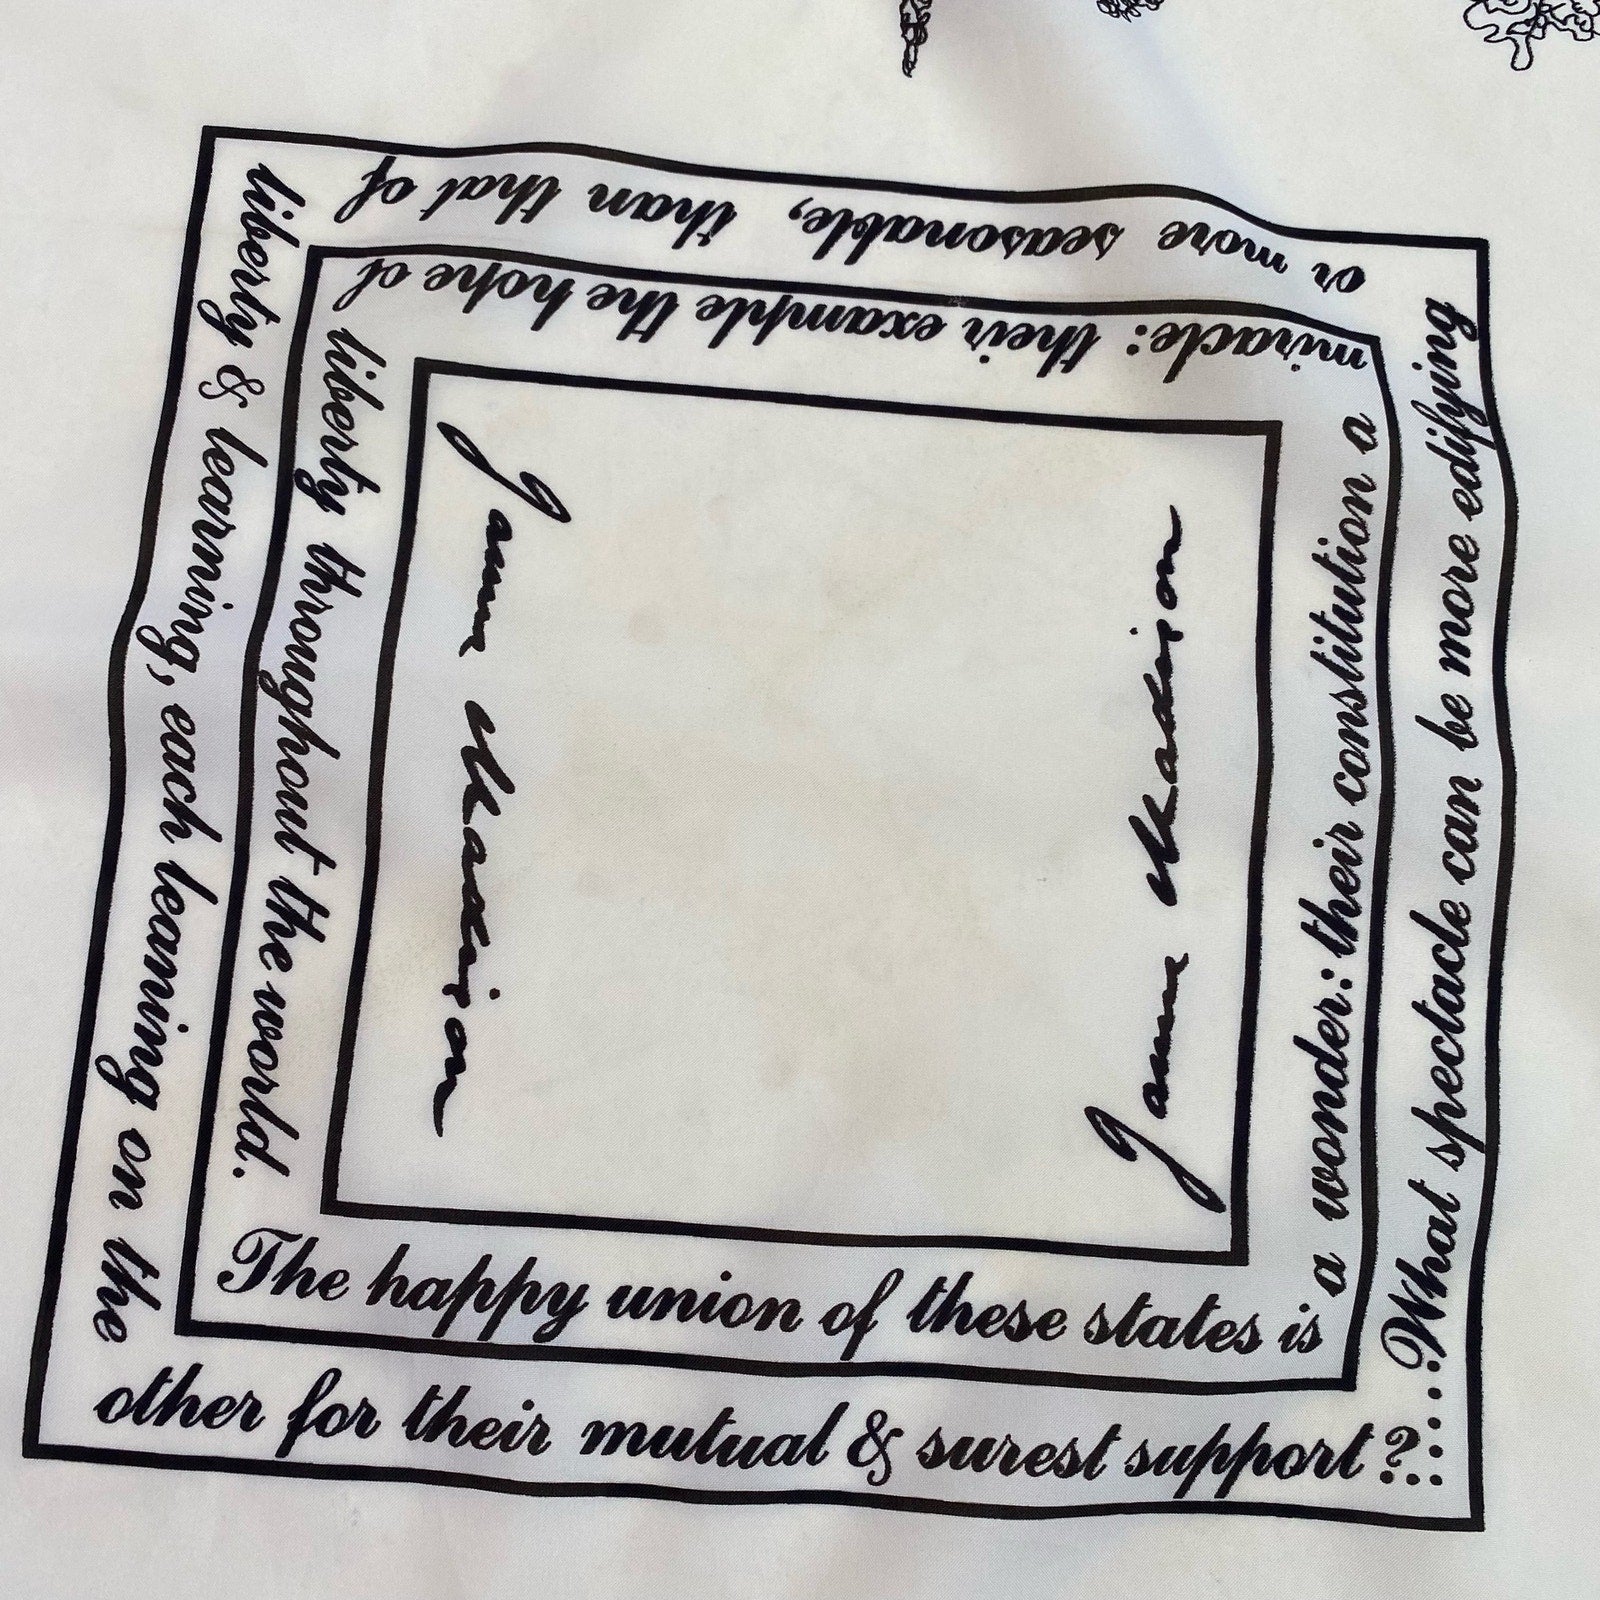 What spectacle can be more edifying
or more seasonable, than that of
liberty & learning, each leaning on the
other for their mutual & surest support?
The happy union of these states is
a wonder: their constitution a
miracle: their example the hope of
liberty throughout the world.
James Madison
James Madison